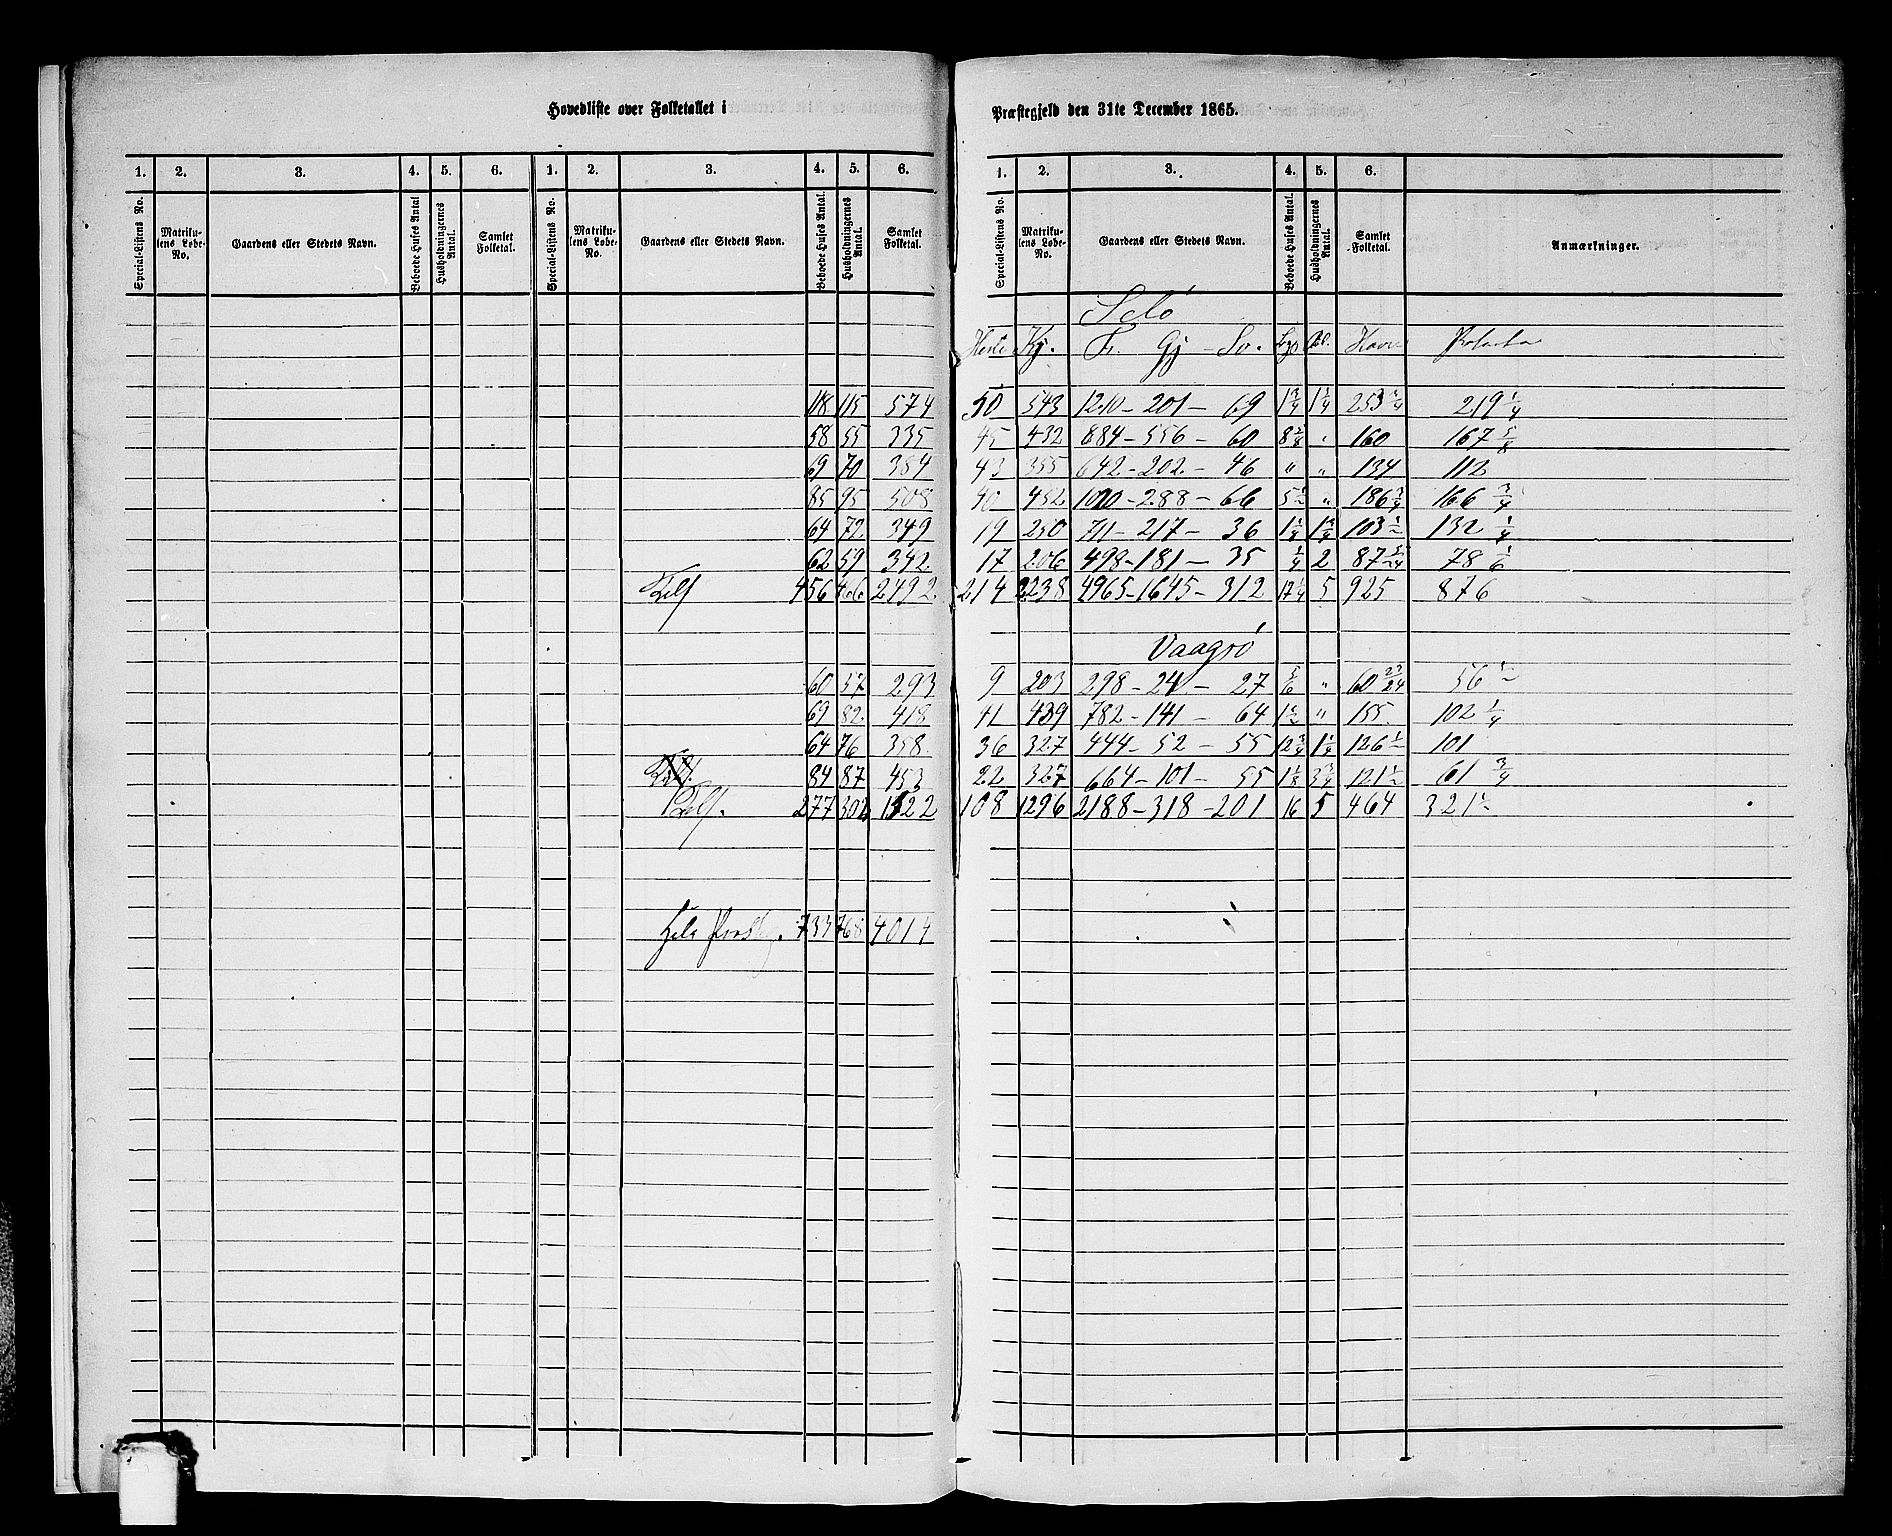 Hovedliste over Folketallet i
Præstegjeld den 31te December 1865.
1. 2. 3. 4. 5. 6. 1. 2. 3. 4. 5. 6. 1. 2. 3. 4. 5. 6.
Special-Listens No. Matrikulens Løbe-No. Gaardens eller Stedets Navn. Beboede Huses Antal. Husholdningernes Antal. Samlet Folketal. Special-Listens No. Matrikulens Løbe-No. Gaardens eller Stedets Navn. Beboede Huses Antal. Husholdningernes Antal. Samlet Folketal. Special-Listens No. Matrikulens Løbe-No. Gaardens eller Stedets Navn. Beboede Huses Antal. Husholdningernes Antal. Samlet Folketal. Anmærkninger.
Selö
Heste Kj. F. Gj - Sv. Havre
118 115 574 50 543 1210 - 201 - 69 1 3/4 1 1/4 253 3/4 219 1/4
58 55 335 45 432 884 - 556 - 60 160 167 5/8
69 70 384 43 355 642 - 202 - 46 " " 134 112
85 95 508 40 452 1010 - 288 - 66 5 1/2 " 186 3/4 166 3/4
64 72 349 19 250 711 - 217 - 36 103 1/2 132 1/4
62 59 342 17 206 498 - 181 - 35 1/4 2 78 1/6
456 466 2492 214 2238 4965 - 1645 - 312 17 1/4 5 925 876
Vaagsö
60 57 293 9 203 298 - 24 - 27 5/6 " 60 23/24 56 1/2
69 82 418 41 439 782 - 141 - 64 1 1/2 " 155 102 1/4
64 76 358 36 327 444 - 52 - 55 12 3/4 1 1/4 126 1/2 101
84 87 453 22 327 664 - 101 - 55 1 1/8 3 3/4 121 1/2 61 3/4
277 302 1522 108 1296 2188 - 318 - 201 16 5 464 321 1/2
Hele Præstg. 733 768 4014